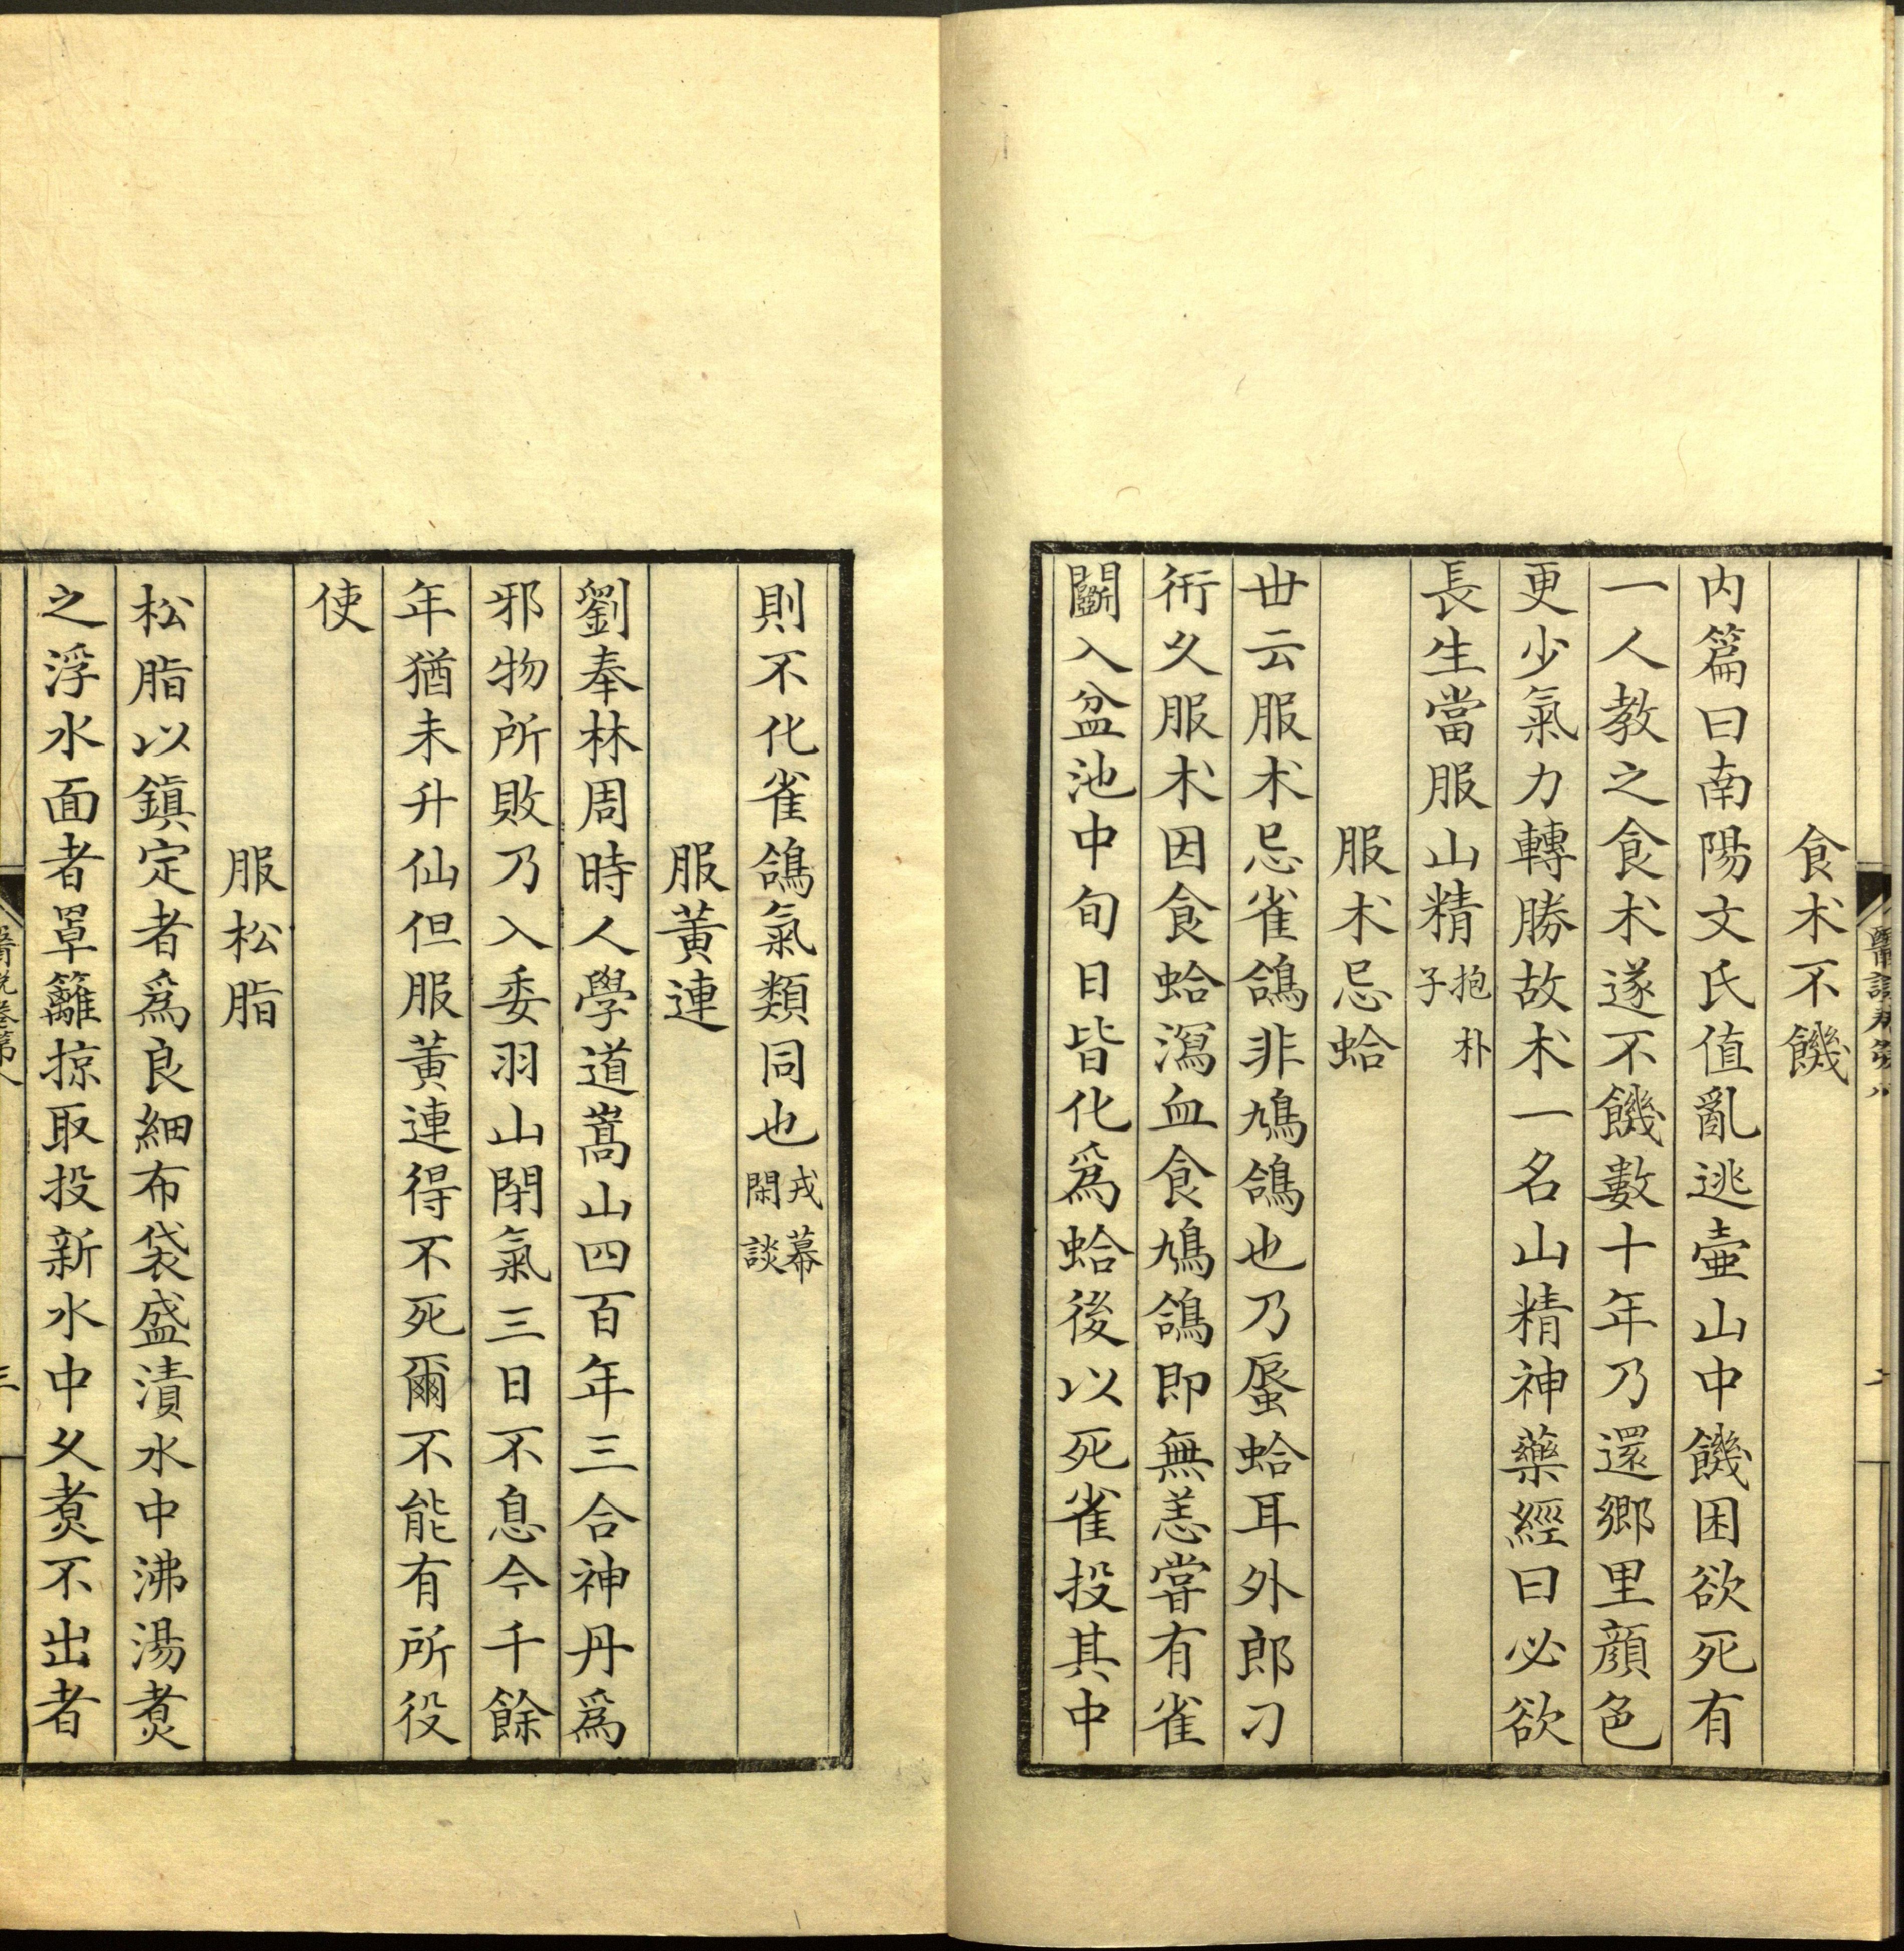 食术不饑
内篇曰南陽文氏值亂逃壷山中饑困欲死有
一人教之食术遂不饑數十年乃還鄉里顔色
更少氣力轉勝故术一名山精神藥經曰必欲
長生當服山精抱朴子
服术忌蛤
丗云服术忌雀鴿非鳩鴿也乃蜃蛤耳外郎刁
衎久服术因食蛤瀉血食鳩鴿即無恙嘗有雀
鬭入盆池中旬日皆化爲蛤後以死雀投其中
則不化雀鴿氣類同也戎幕閑談
服黃連
劉奉林周時人學道嵩山四百年三合神丹爲
邪物所敗乃入委羽山閉氣三日不息今千餘
年猶未升仙但服黃連得不死爾不能有所役
使
服松脂
松脂以鎮定者爲良細布袋盛漬水中沸湯煑
之浮水面者罩籬掠取投新水中久煑不出者